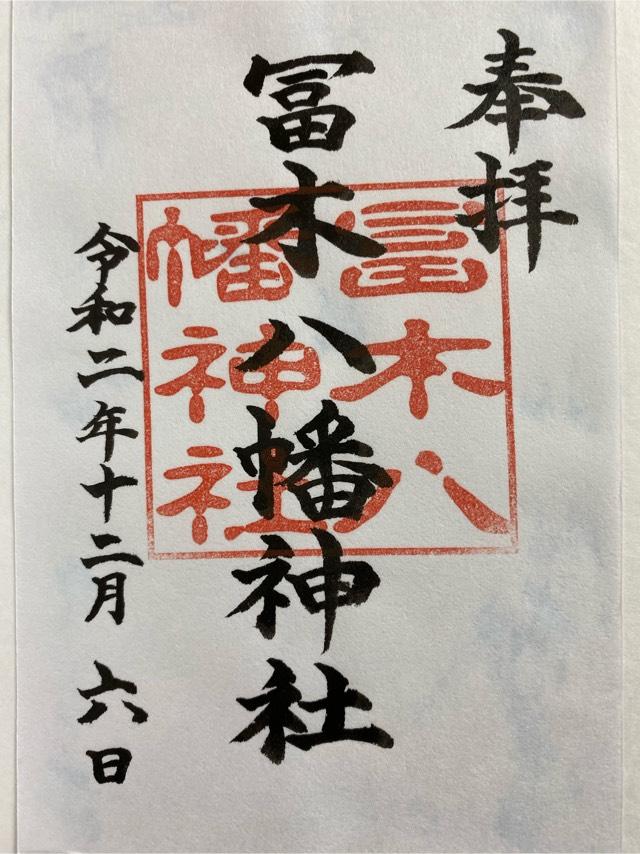 奉拝
冨木八幡神社
冨木八
幡神社
令和二年十二月六日